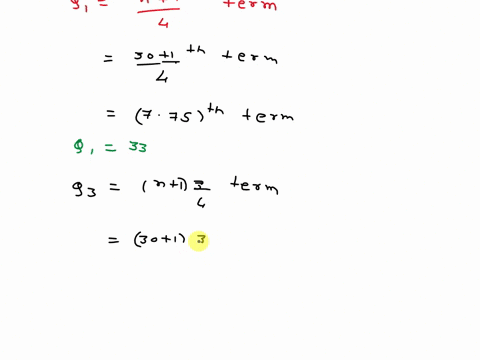 Q₁ = n+1/4 th term
= 30+1/4 th term
= (7.75)th term
Q₁ = 33
Q₃ = (n+1) 3/4 term
= (30+1) 3